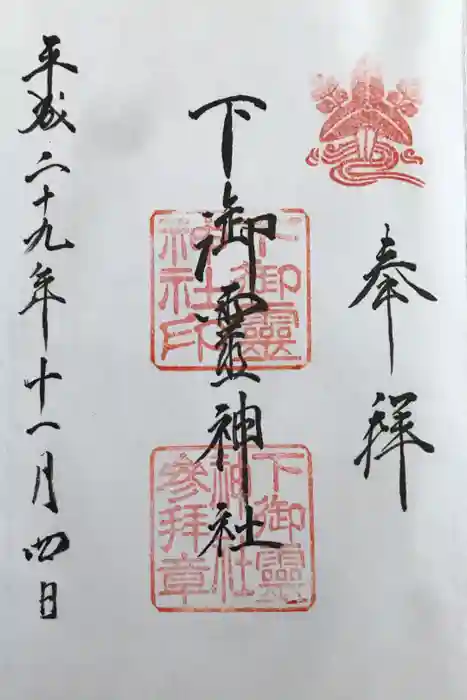 奉拝
下御靈神社
下御靈神社印
下御靈神社参拝章
平成二十九年十一月四日